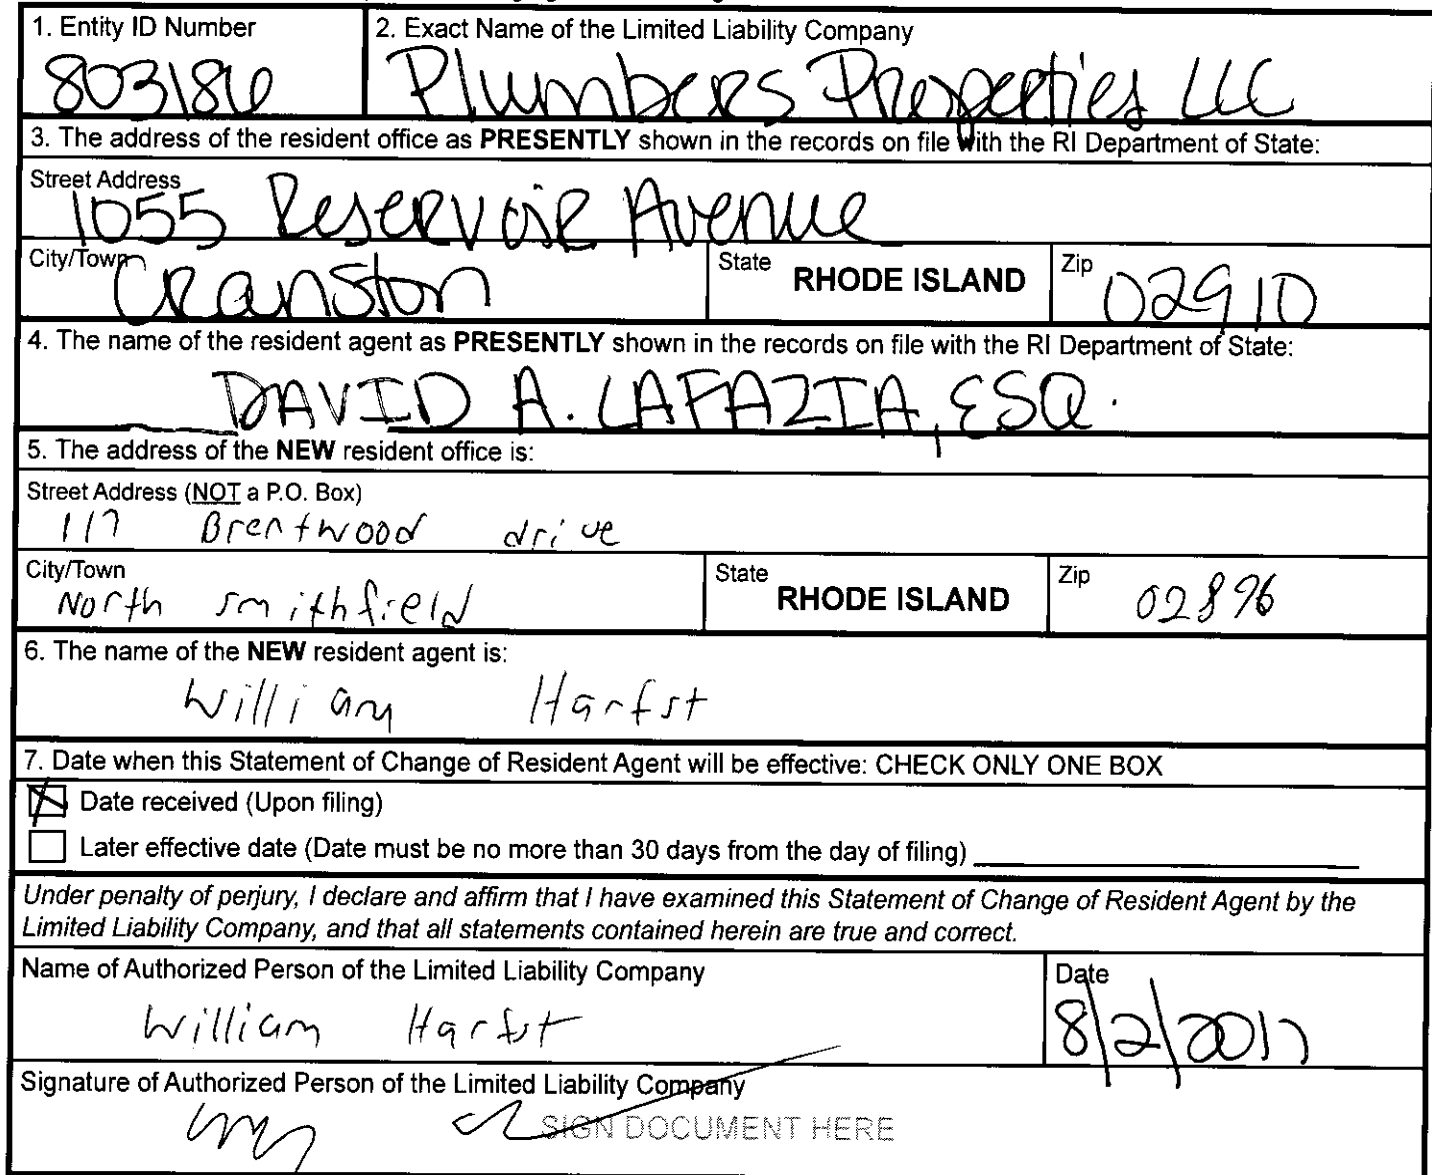 1. Entity ID Number
803186
2. Exact Name of the Limited Liability Company
Plumbers Properties LLC
3. The address of the resident office as PRESENTLY shown in the records on file with the RI Department of State:
Street Address
1055 Reservoir Avenue
City/Town
Cranston
State
RHODE ISLAND
Zip
02910
4. The name of the resident agent as PRESENTLY shown in the records on file with the RI Department of State:
DAVID A. LAFAZIA, ESQ.
5. The address of the NEW resident office is:
Street Address (NOT a P.O. Box)
117 Brentwood drive
City/Town
North smithfield
State
RHODE ISLAND
Zip
02896
6. The name of the NEW resident agent is:
William Harfst
7. Date when this Statement of Change of Resident Agent will be effective: CHECK ONLY ONE BOX
Date received (Upon filing)
Later effective date (Date must be no more than 30 days from the day of filing)
Under penalty of perjury, I declare and affirm that I have examined this Statement of Change of Resident Agent by the
Limited Liability Company, and that all statements contained herein are true and correct.
Name of Authorized Person of the Limited Liability Company
William Harfst
Date
8/2/2017
Signature of Authorized Person of the Limited Liability Company
SIGN DOCUMENT HERE